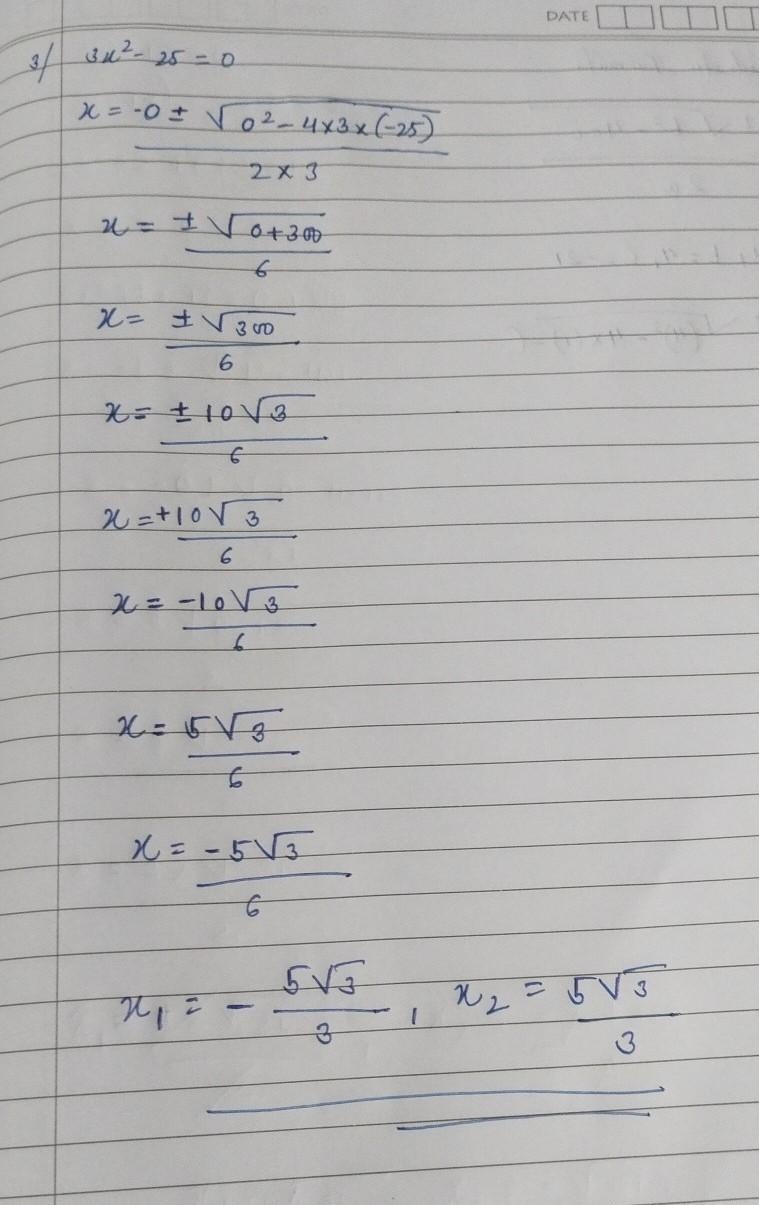 DATE
3/ 3x² - 25 = 0
x = -0 ± √0² - 4×3×(-25)
2 × 3
x = ± √0+300
6
x = ± √300
6
x = ± 10√3
6
x = +10√3
6
x = -10√3
6
x = 5√3
6
x = -5√3
6
x₁ = - 5√3/3 , x₂ = 5√3/3